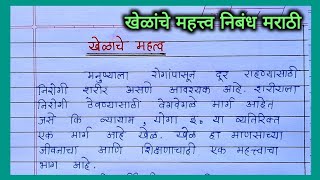 खेळांचे महत्त्व निबंध मराठी
खेळाचे महत्व
मनुष्याला रोगांपासून दूर राहण्यासाठी
निरोगी शरीर असणे आवश्यक आहे. शरीराला
निरोगी ठेवण्यासाठी वेगवेगळे मार्ग आहेत
जसे कि व्यायाम, योगा इ० या व्यतिरिक्त
एक मार्ग आहे खेळ. खेळ हा माणसाच्या
जीवनाचा आणि शिक्षणाचाही एक महत्त्वाचा
भाग आहे.